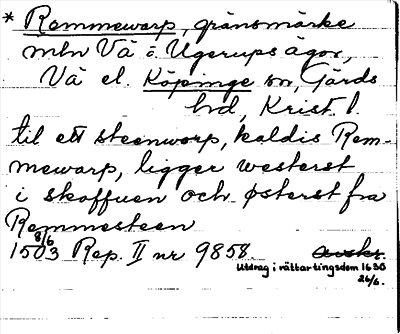 * Remmewarp, gränsmärke
mln Vä o Ugerups ägor,
Vä el. Köpinge sn, Gärds
hd, Krist. l.
til ett steenworp, kaldis Rem-
mewarp, ligger westerst
i skoffuen och østerst fra
Remmesteen
8/6
1503 Rep. II nr 9858.
Avskr.
Utdrag i rättartingsdom 1630
26/6.